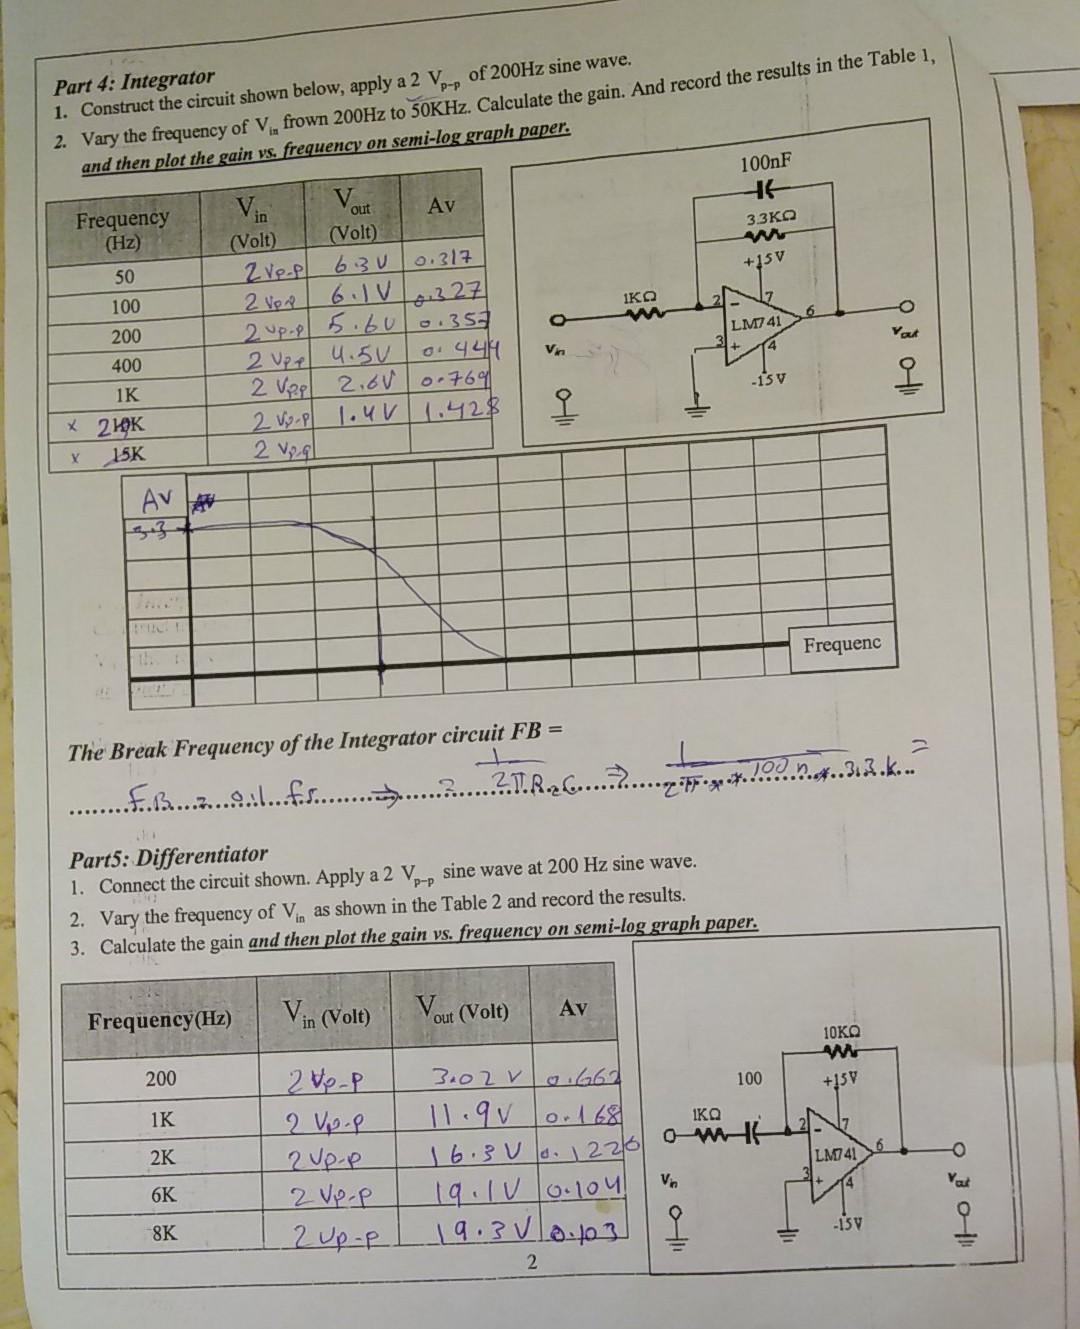 Part 4: Integrator
1. Construct the circuit shown below, apply a 2 Vp-p of 200Hz sine wave.
2. Vary the frequency of Vin frown 200Hz to 50KHz. Calculate the gain. And record the results in the Table 1,
and then plot the gain vs. frequency on semi-log graph paper.
Frequency (Hz) Vin (Volt) Vout (Volt) Av
50 2 Vp-p 6.3 V 0.317
100 2 Vp-p 6.1 V 0.327
200 2 Vp-p 5.6 V 0.357
400 2 Vp-p 4.5V 0.444
1K 2 Vpp 2.6V 0.769
x 2K 2 Vp-p 1.4 V 1.428
x 15K 2 Vp-p
100nF
3.3KΩ
+15V
1KΩ
2 - 7
LM741 6
3 + 4
-15V
Vin
Vout
Av
3.3
Frequenc
The Break Frequency of the Integrator circuit FB =
FB = 0.1 fs ⇒ = 1 / 2π R2C ⇒ 1 / 2π * 100 n * 3.3 k =
Part5: Differentiator
1. Connect the circuit shown. Apply a 2 Vp-p sine wave at 200 Hz sine wave.
2. Vary the frequency of Vin as shown in the Table 2 and record the results.
3. Calculate the gain and then plot the gain vs. frequency on semi-log graph paper.
Frequency(Hz) Vin (Volt) Vout (Volt) Av
200 2 Vp-p 3.02 V 0.662
1K 2 Vp-p 11.9V 0.168
2K 2 Vp-p 16.3 V 0.1226
6K 2 Vp-p 19.1 V 0.104
8K 2 Vp-p 19.3 V 0.103
10KΩ
100
+15V
1KΩ
2 - 7
LM741 6
3 + 4
-15V
Vin
Vout
2